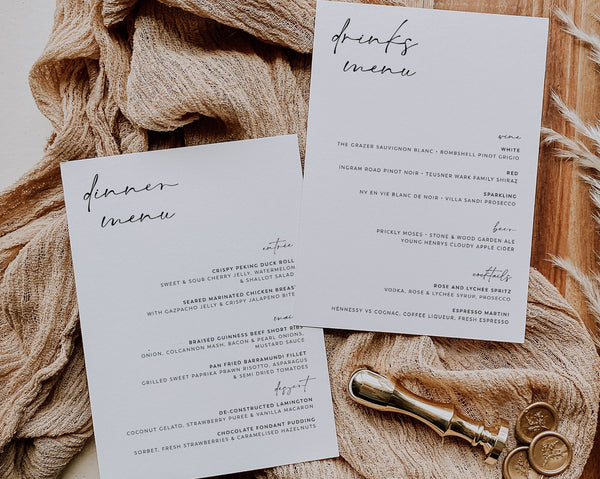 dinner
menu
entrée
CRISPY PEKING DUCK ROLL
SWEET & SOUR CHERRY JELLY, WATERMELON
& SHALLOT SALAD
SEARED MARINATED CHICKEN BREAS
WITH GAZPACHO JELLY & CRISPY JALAPENO BITE
BRAISED GUINNESS BEEF SHORT RIBS
ONION, COLCANNON MASH, BACON & PEARL ONIONS,
MUSTARD SAUCE
PAN FRIED BARRAMUNDI FILLET
GRILLED SWEET PAPRIKA PRAWN RISOTTO, ASPARAGUS
& SEMI DRIED TOMATOES
dessert
DE-CONSTRUCTED LAMINGTON
COCONUT GELATO, STRAWBERRY PUREE & VANILLA MACARON
CHOCOLATE FONDANT PUDDING
SORBET, FRESH STRAWBERRIES & CARAMELISED HAZELNUTS
drinks
menu
wine
WHITE
THE GRAZER SAUVIGNON BLANC - BOMBSHELL PINOT GRIGIO
RED
INGRAM ROAD PINOT - TEUSNER WARK FAMILY SHIRAZ
SPARKLING
NV EN VIE BLANC DE NOIR - VILLA SANDI PROSECCO
beer
PRICKLY MOSES - STONE & WOOD GARDEN ALE
YOUNG HENRYS CLOUDY APPLE CIDER
cocktails
ROSE AND LYCHÉE SPRITZ
VODKA, ROSE & LYCHEE SYRUP, PROSECCO
ESPRESSO MARTINI
HENNESSY VS COGNAC, COFFEE LIQUEUR, FRESH ESPRESSO